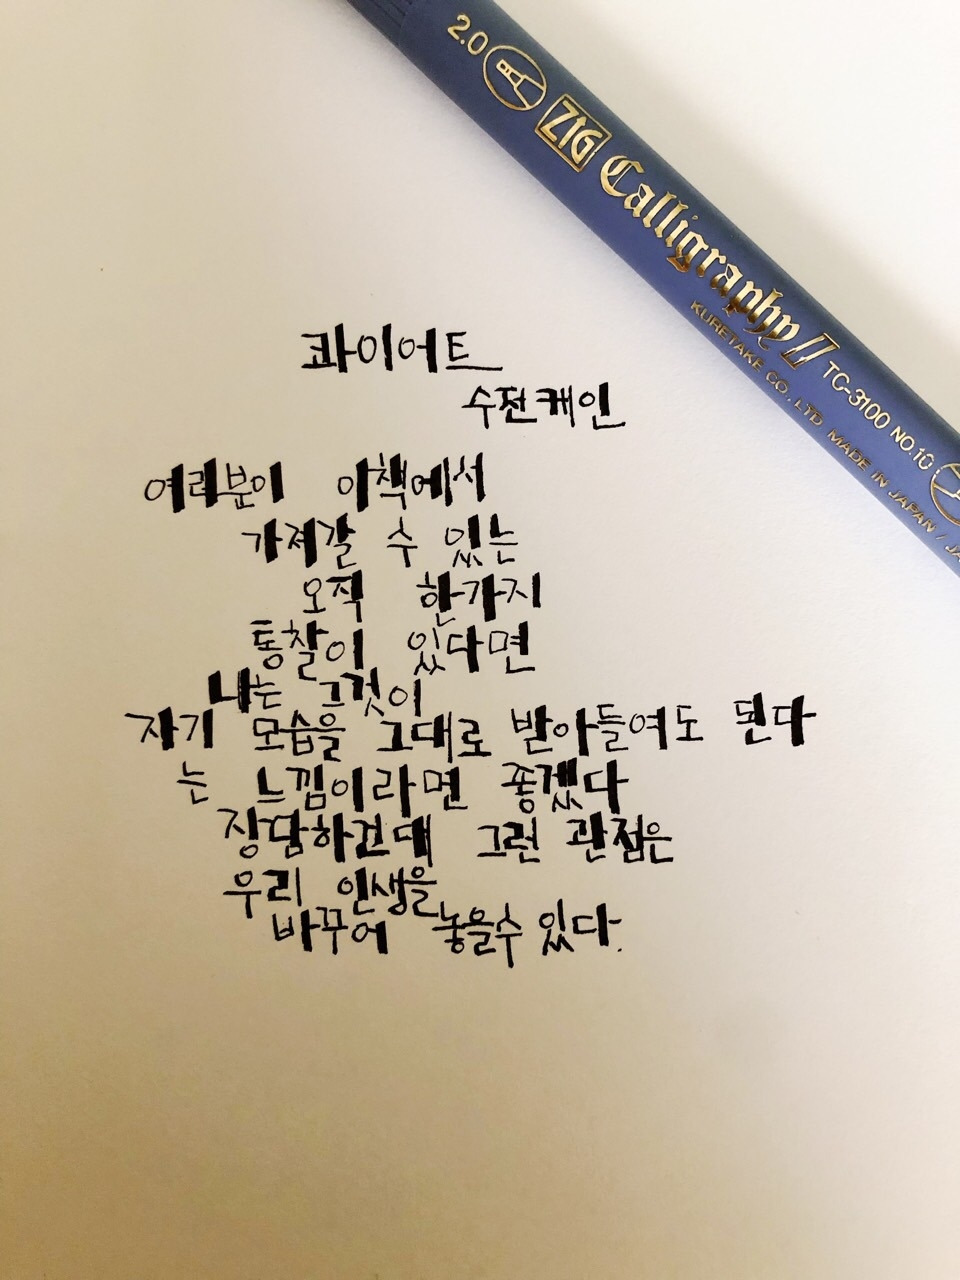 2.0 ZIG Calligraphy II TC-3100 NO.10
KURETAKE CO., LTD. MADE IN JAPAN / JA
콰이어트
수전케인
여러분이 이책에서
가져갈 수 있는
오직 한가지
통찰이 있다면
나는 그것이
자기 모습을 그대로 받아들여도 된다
는 느낌이라면 좋겠다
장담하건대 그런 관점은
우리 인생을
바꾸어 놓을수 있다.